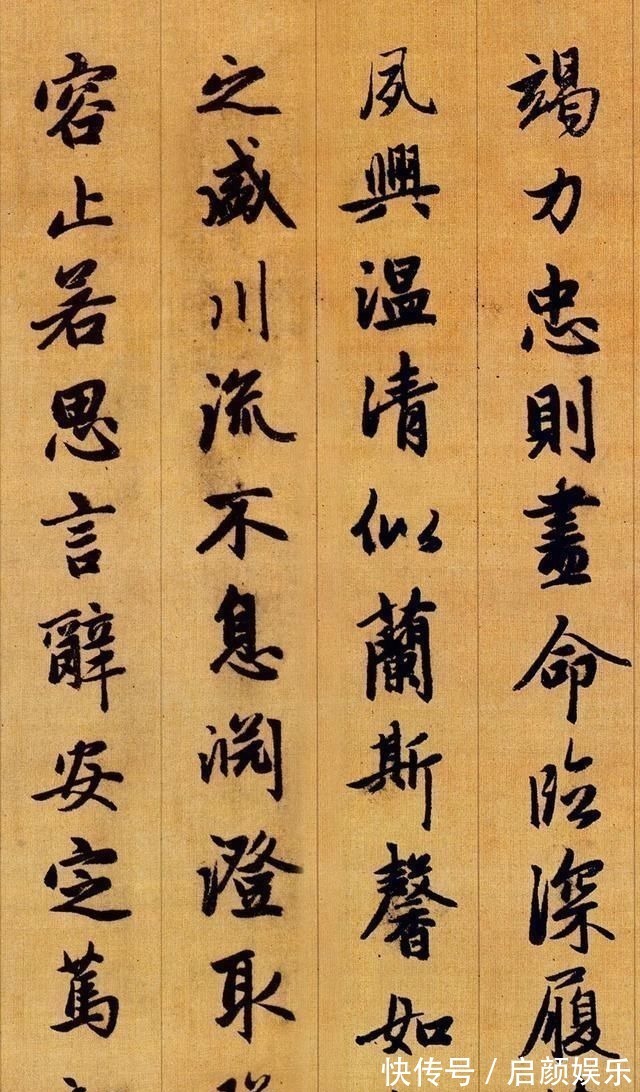 竭力忠則盡命臨深履
夙興温清似蘭斯馨如
之盛川流不息淵澄取
容止若思言辭安定篤
快传号 / 启颜娱乐